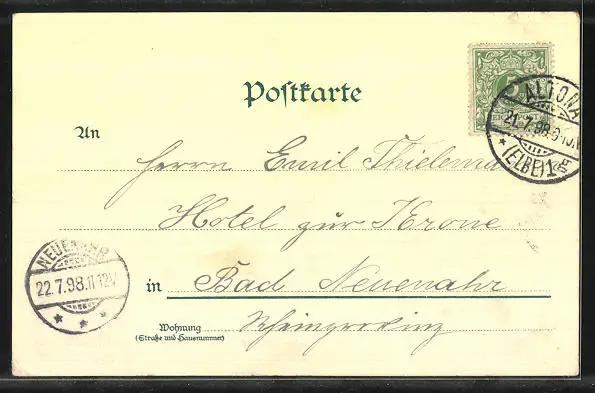 Postkarte
5
REICHSPOST
ALTONA
21.7.98.9-10.V
* (ELBE) 1 g
An
Herrn Emil
Hotel zur Krone
NEUENAHR
22.7.98.11-12V
in Bad Neuenahr
Wohnung
(Straße und Hausnummer)